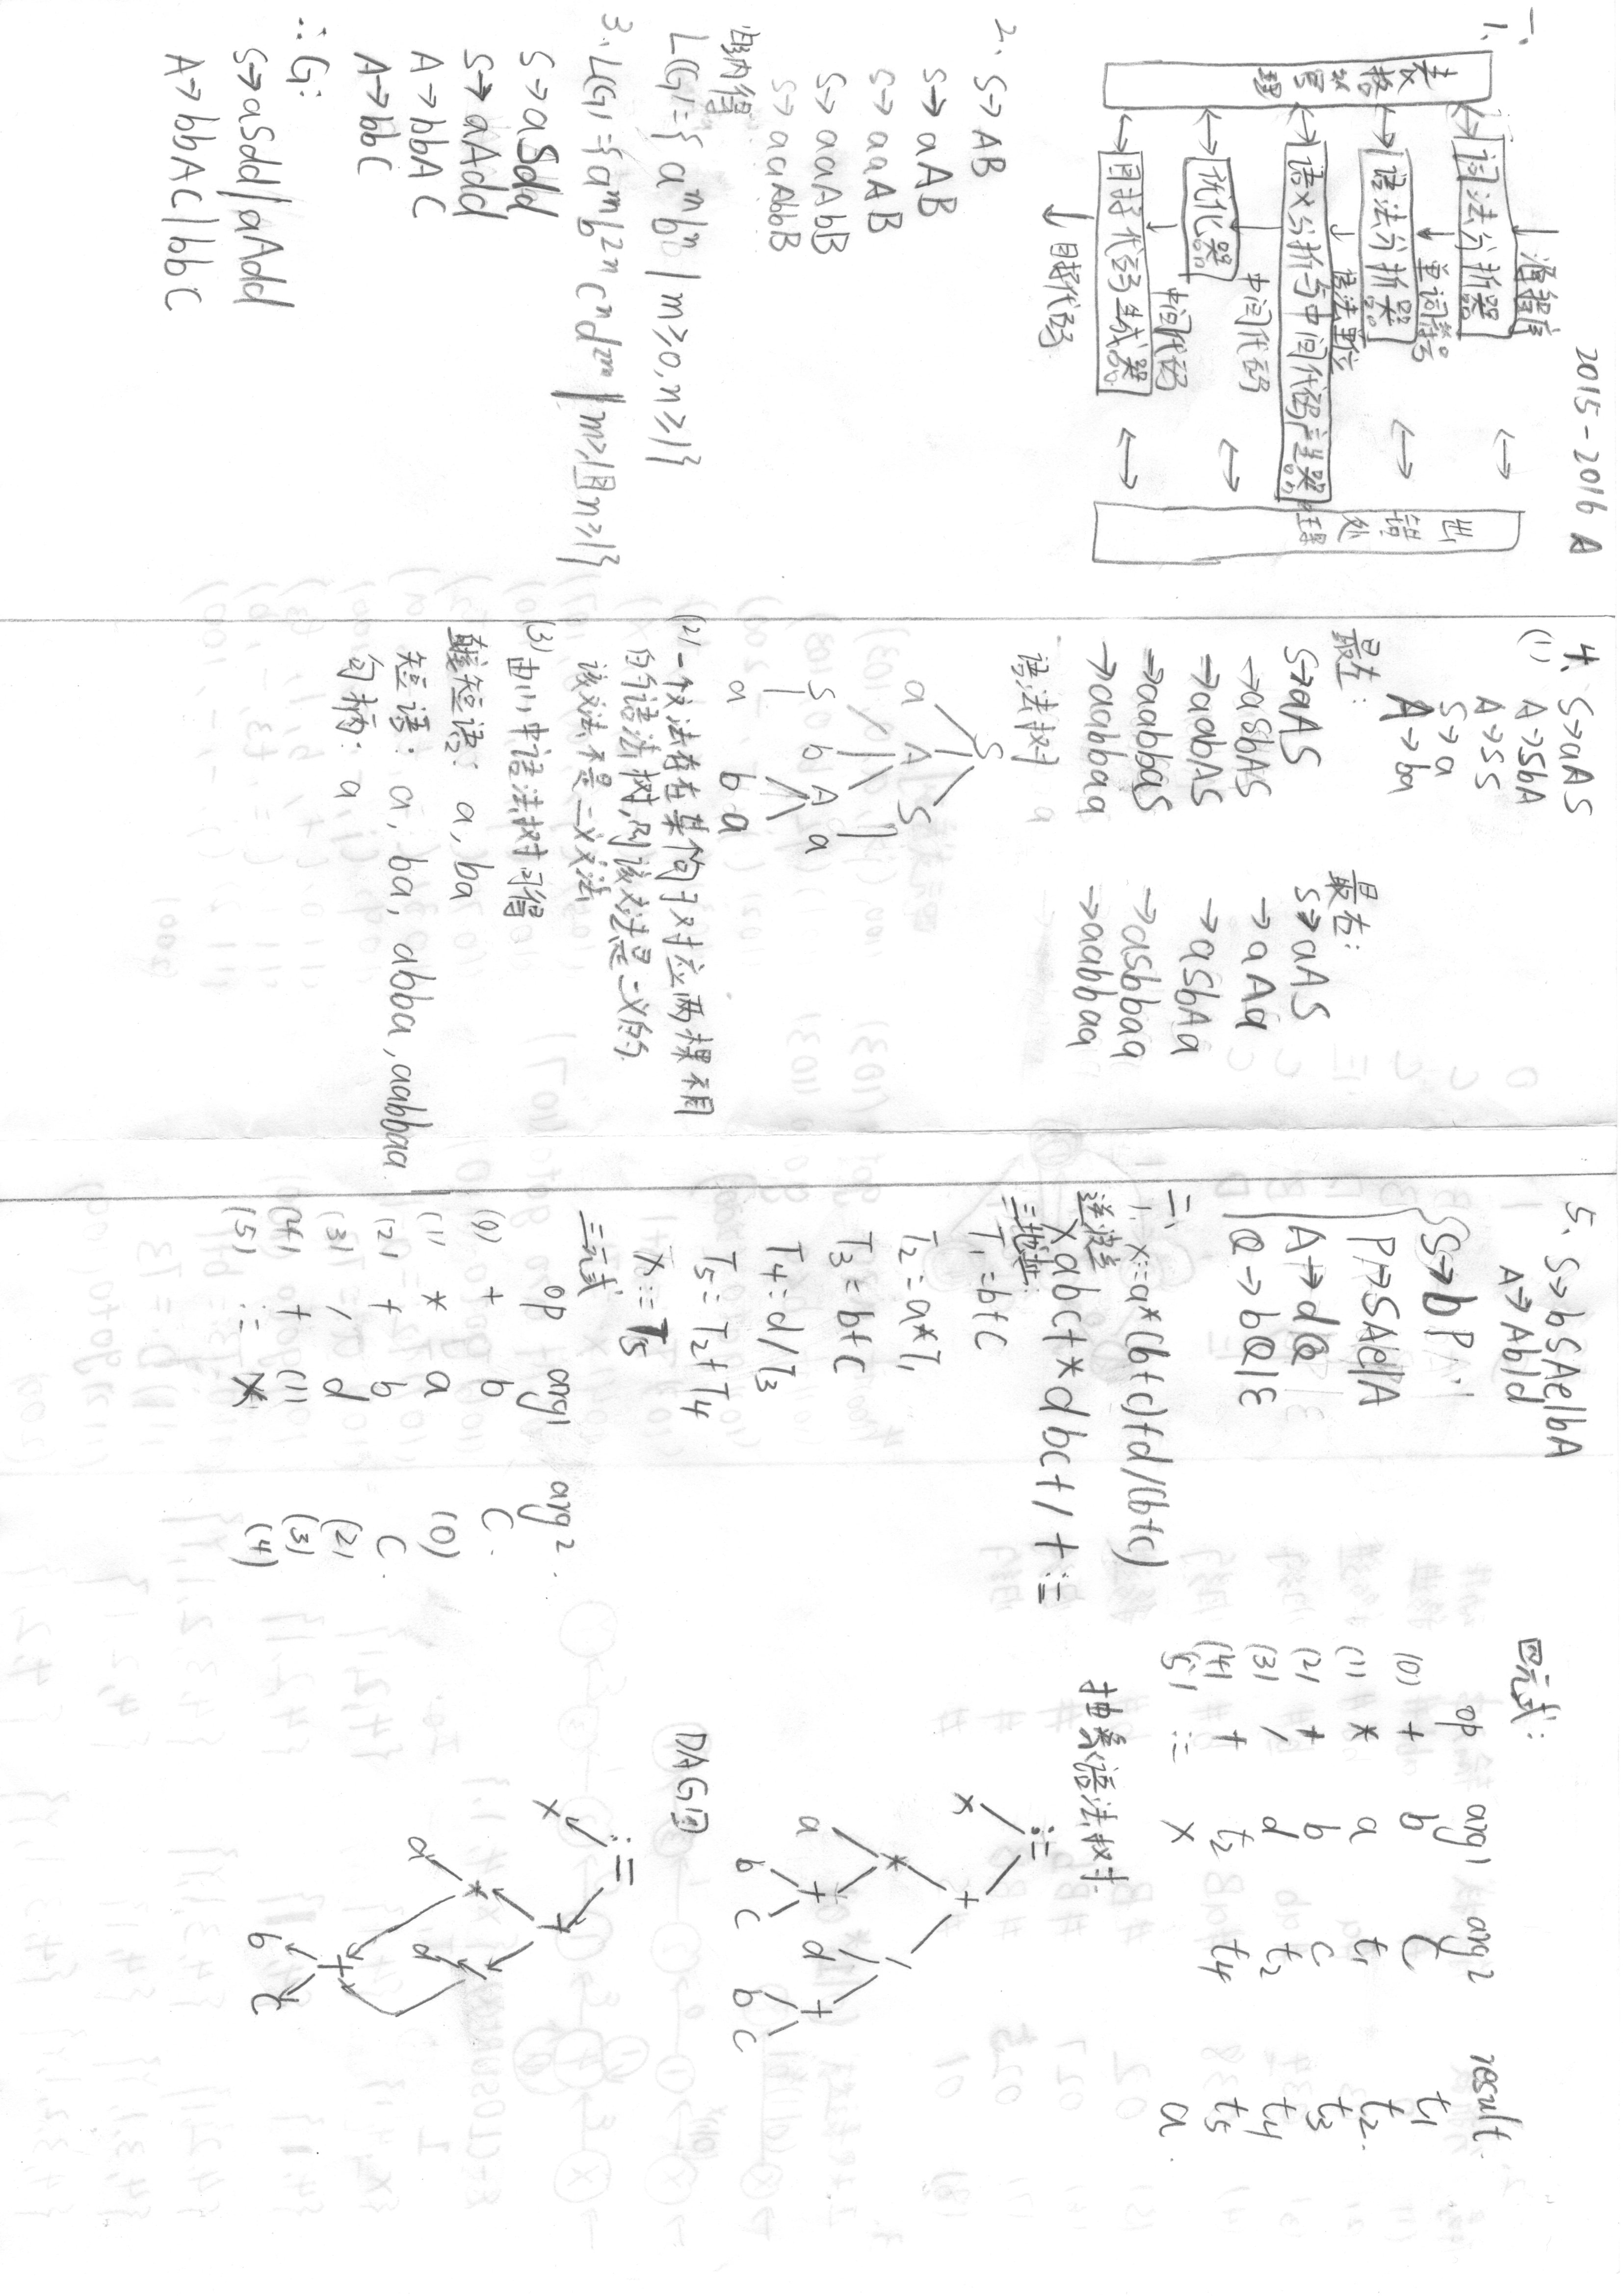 2015-2016 A
一、
1、
↓源程序
词法分析器
↓单词符号
语法分析器
↓语法单位
语义分析与中间代码产生器
中间代码
优化器
中间代码
目标代码生成器
↓目标代码
表格管理
出错处理
2、S→AB
S→aAB
S→aaAB
S→aaAbB
S→aaAbbB
归纳得
L(G)={a^m b^n | m≥0,n≥1}
3、L(G)={a^m b^2n c^n d^2m | m≥1且n≥1}
S→aSdd
S→aAdd
A→bbAC
A→bbC
∴G:
S→aSdd/aAdd
A→bbAC|bbC
4、S→aAS
(1) A→SbA
A→SS
S→a
A→ba
最左:
S→aAS
→aSbAS
→aabAS
→aabbaS
→aabbaa
最右:
S→aAS
→aAa
→aSbAa
→asbbaa
→aabbaa
语法树
S
a A S
S b A a
a b a
(2)一个文法存在某句子对应两棵不同
的语法树,则该文法是二义的.
该文法不是二义文法
(3)由(1)中语法树可得
直接短语: a, ba
短语: a, ba, abba, aabbaa
句柄: a
5、S→bSAe|bA
A→Ab|d
S→bP
P→SAe|A
A→dQ
Q→bQ|ε
二、
1、x:=a*(b+c)+d/(b+c)
逆波兰
xabc+*dbc+/+:=
三地址:
T1=b+C
T2=a*T1
T3=b+C
T4=d/T3
T5=T2+T4
x:=T5
三元式
op arg1 arg2
(0) + b C
(1) * a (0)
(2) + b C
(3) / d (2)
(4) + (1) (3)
(5) := x (4)
四元式:
op arg1 arg2 result
(0) + b C t1
(1) * a t1 t2
(2) + b c t3
(3) / d t2 t4
(4) + t2 t4 t5
(5) := x a
抽象语法树
:=
x +
* /
a + d +
b c b c
DAG图
:=
x +
* /
a d
+
b C